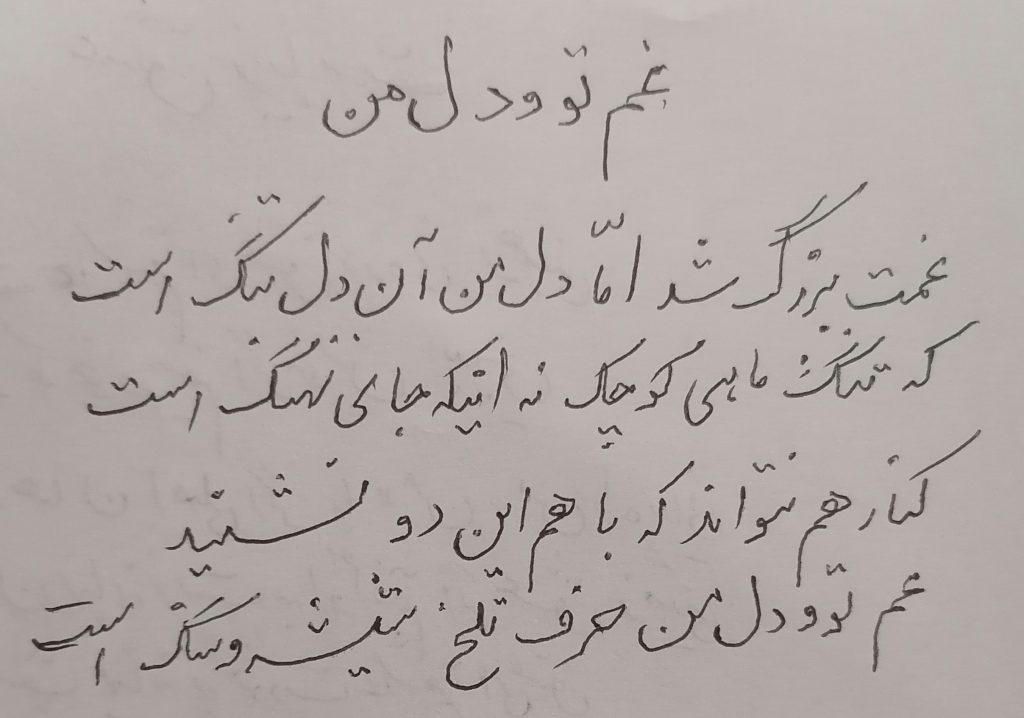 غم تو و دل من
غمت بزرگ شد امّا دل من آن دل تنگ است
که تنگ ماهی کوچک نه اینکه جای نهنگ است
کنار هم نتواند که با هم این دو نشینند
غم تو و دل من حرف تلخ شیشه و سنگ است